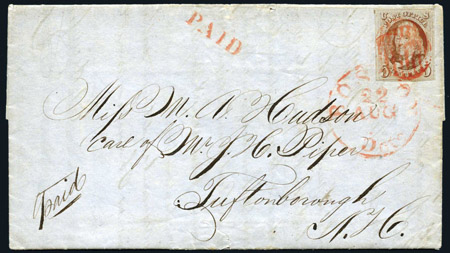 PAID
POST OFFICE
5 5
22
AUG
Miss M. A. Hudson
Care of Mr J. C. Piper
Tuftonborough
N. H.
Paid